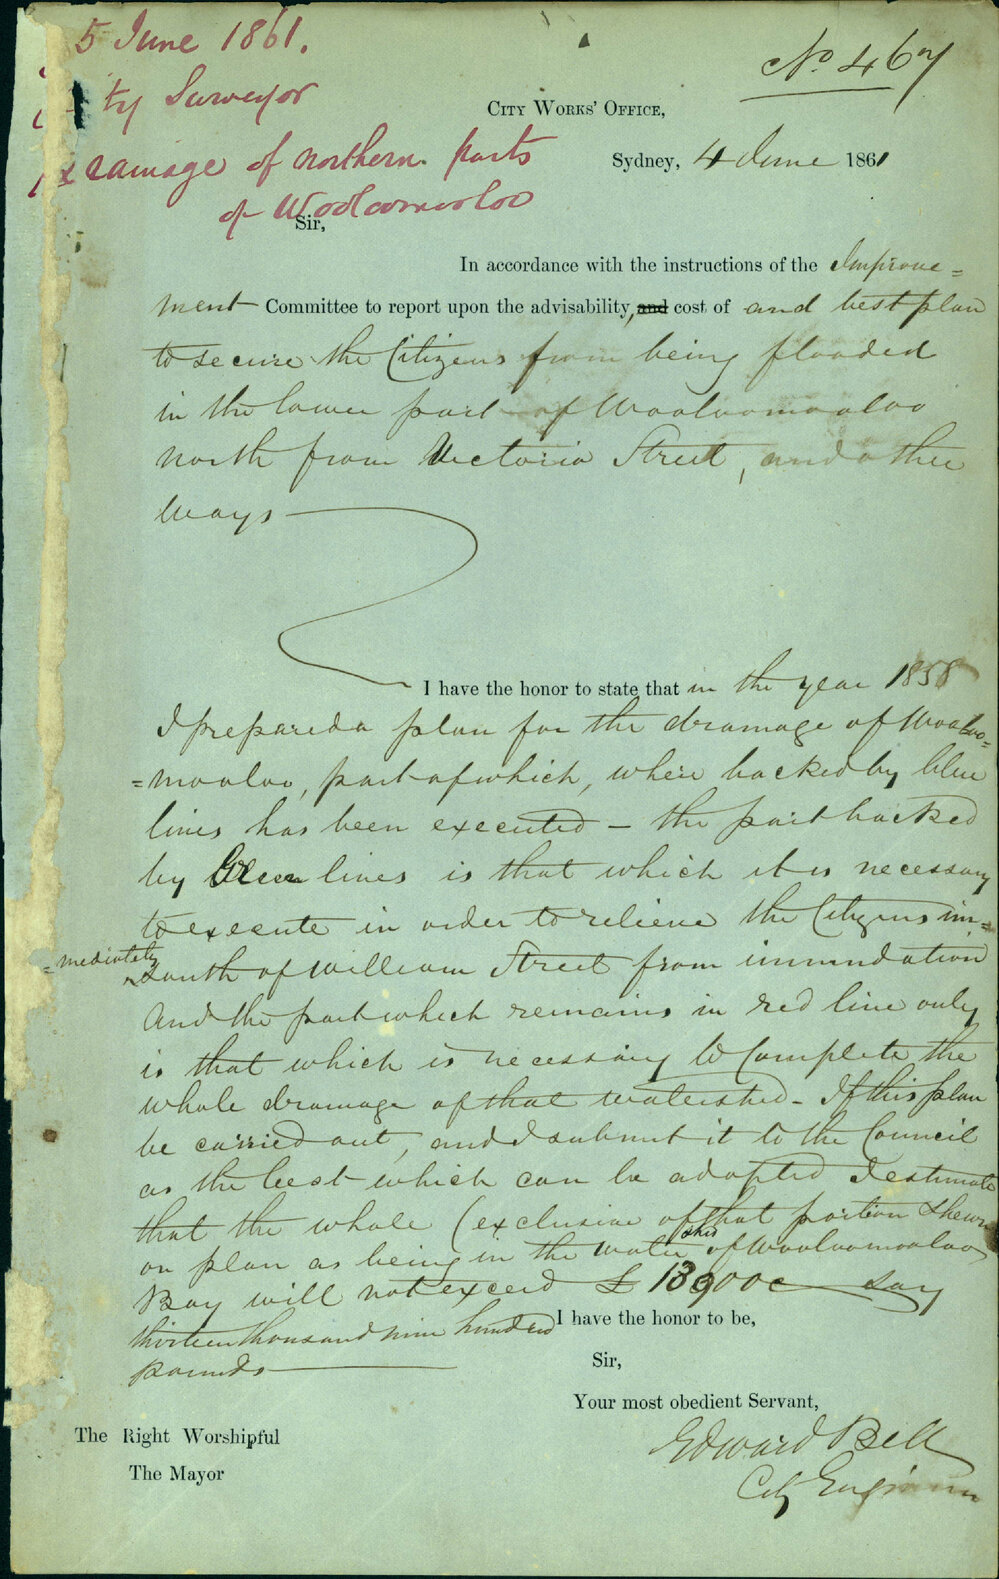 5 June 1861.
No 467
ty Surveyor
City Works' Office,
rainage of northern parts
Sydney, 4 June 1861
of Woolloomooloo
Sir,
In accordance with the instructions of the Improve=
ment Committee to report upon the advisability, and cost of and best plan
to secure the Citizens from being flooded
in the lower part of Wooloomooloo
north from Victoria Street, and other
ways
I have the honor to state that in the year 1858
I prepared a plan for the drainage of Wooloo=
=mooloo, part of which, where backed by blue
lines has been executed – the part backed
by Green lines is that which it is necessary
to execute in order to relieve the Citizens im=
=mediately south of William Street from inundation
And the part which remains in red line only
is that which is necessary to Complete the
whole drainage of that watershed – If this plan
be carried out, and I submit it to the Council
as the best which can be adopted I estimate
that the whole (exclusive of that portion shewn
on plan as being in the water of Wooloomooloo
Bay will not exceed £13900 say
thirteen thousand nine hundred
pounds
I have the honor to be,
Sir,
Your most obedient Servant,
Edward Bell
City Engineer
The Right Worshipful
The Mayor